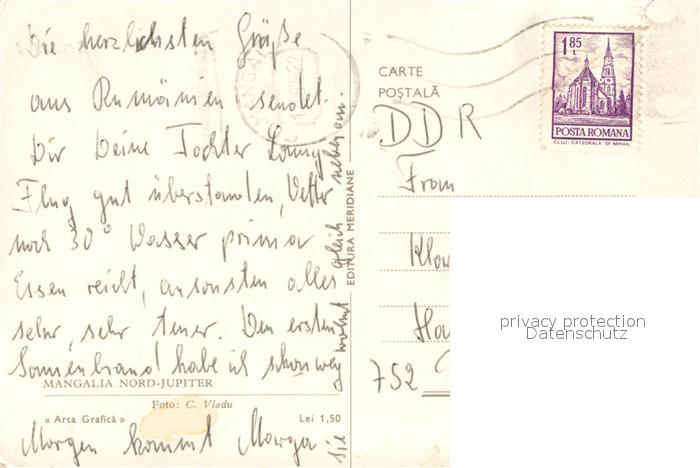 Die herzlichsten Grüße
aus Rumänien sendet
Dir Deine Tochter
Flug gut überstanden, Wetter
noch 30° Wasser prima
Essen reicht, ansonsten alles
sehr, sehr teuer. Den ersten
Sonnenbrand habe ich schon weg
MANGALIA NORD-JUPITER
Foto: C. Vladu
« Arta Grafică » Lei 1,50
Morgen kommt Marga
sie wohnt gleich nebenan.
EDITURA MERIDIANE
CARTE
POȘTALĂ
DDR
1,85 L
POSTA ROMANA
CLUJ - CATEDRALA SF MIHAIL
MANGAL
Frau
Klow
Ha
752
privacy protection
Datenschutz